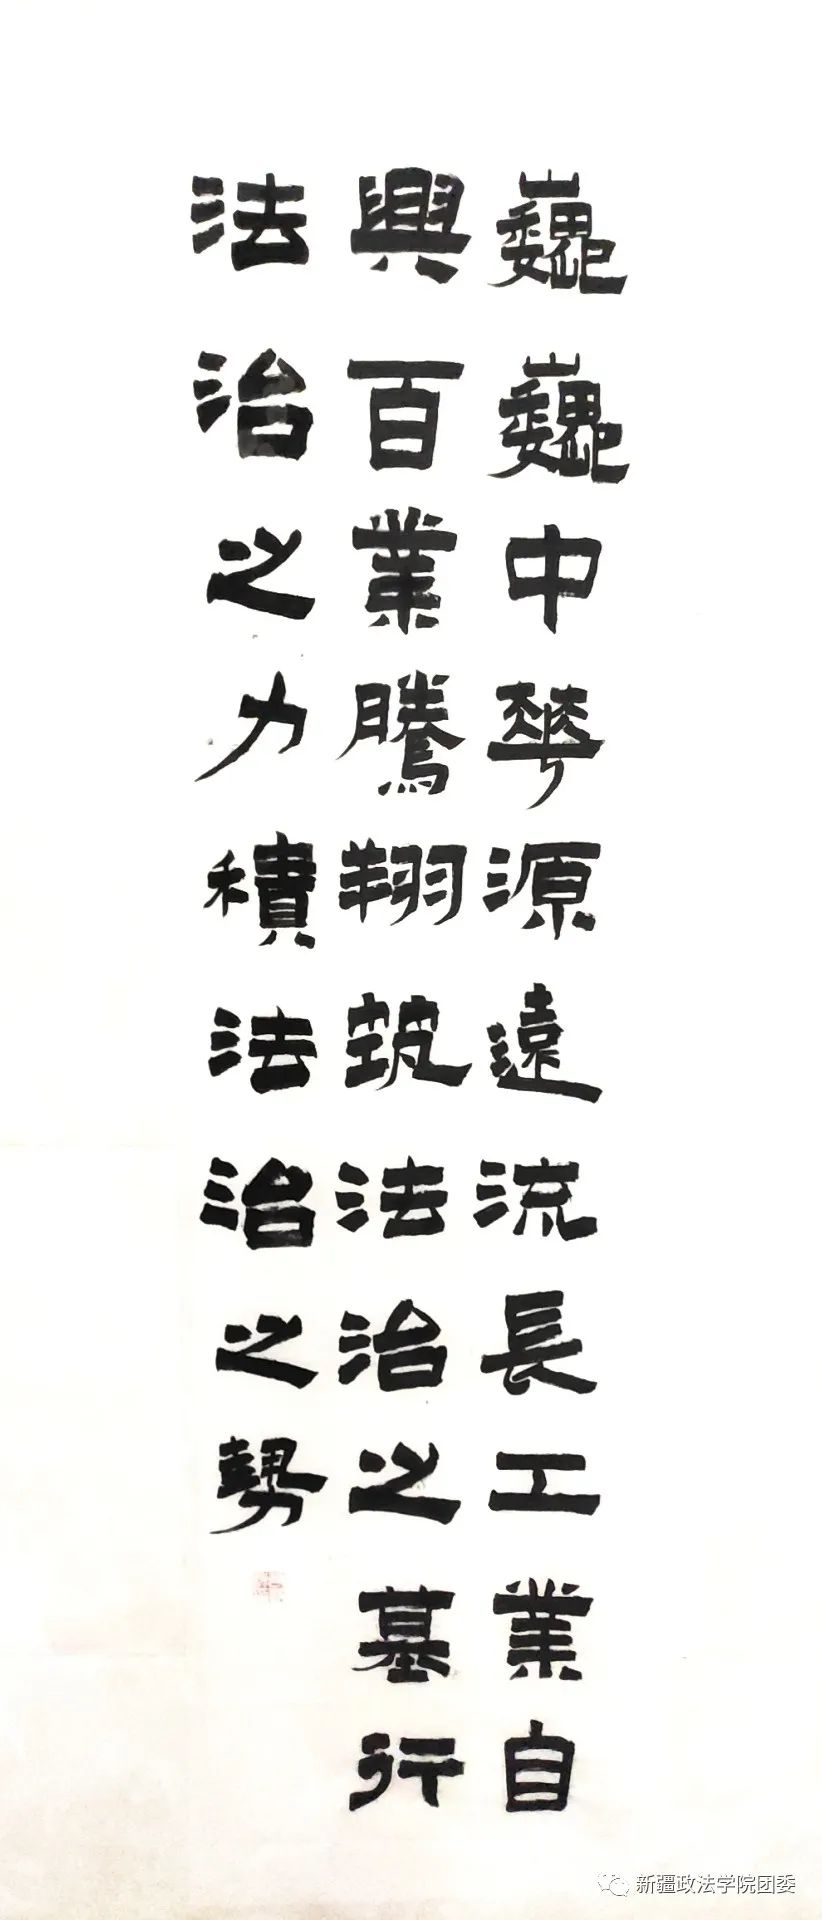 巍巍中華源遠流長工業自
興百業騰翔筑法治之墓行
法治之力積法治之勢
新疆政法学院团委